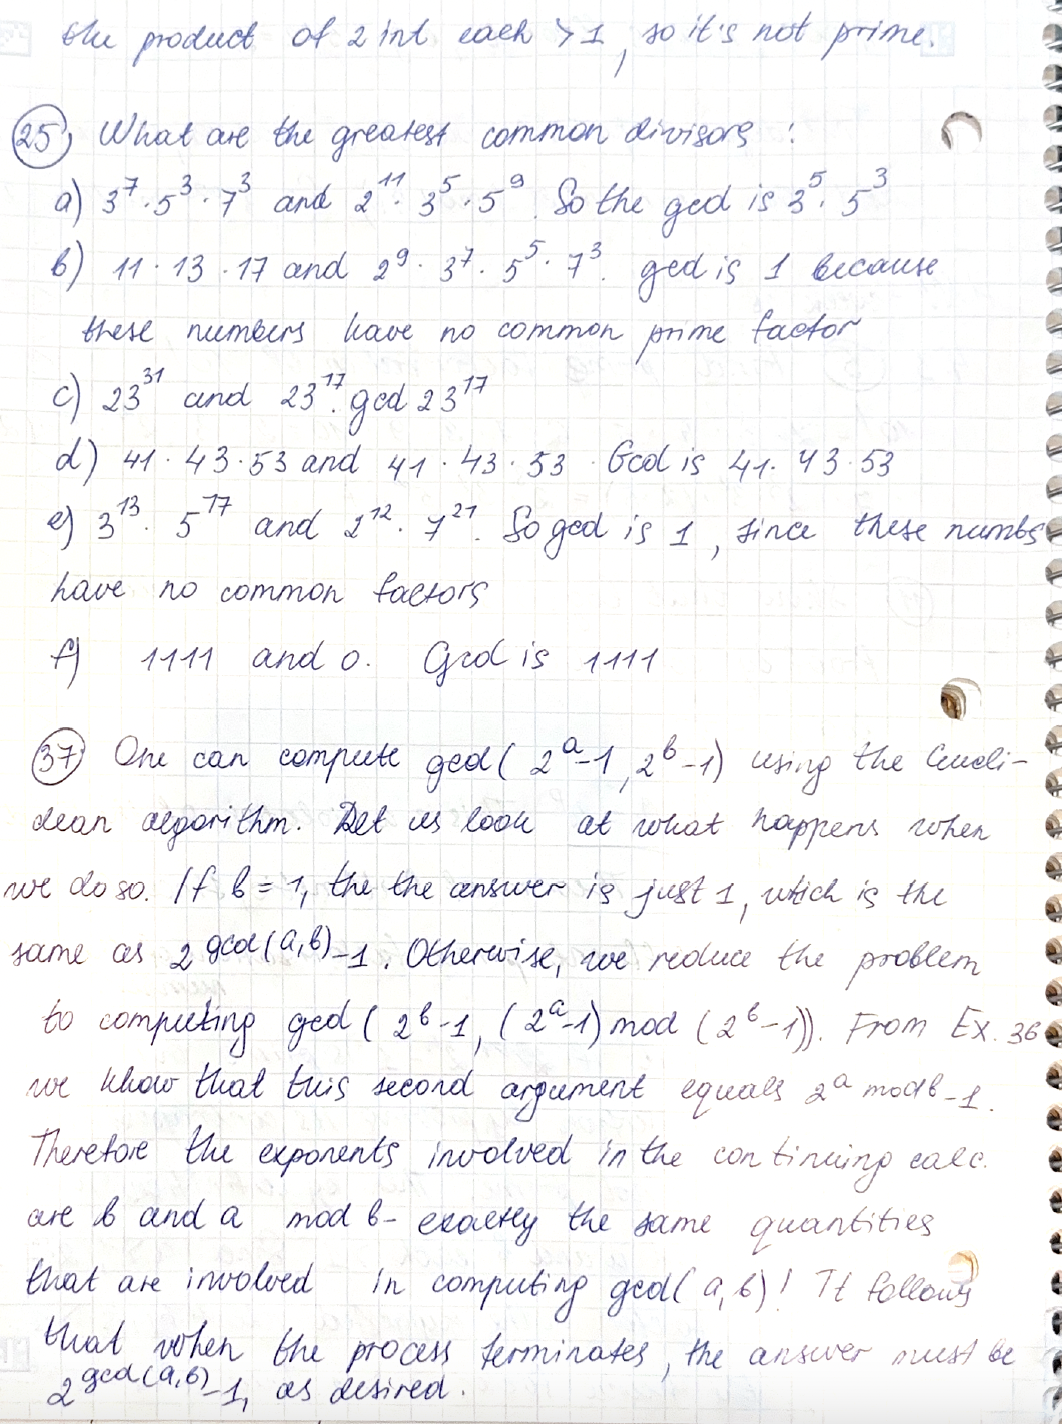 the product of 2 int each > 1, so it's not prime.
25) What are the greatest common divisors :
a) 3^7 · 5^3 · 7^3 and 2^11 · 3^5 · 5^9. So the gcd is 3^5 · 5^3
b) 11 · 13 · 17 and 2^9 · 3^7 · 5^5 · 7^3. gcd is 1 because
these numbers have no common prime factor
c) 23^31 and 23^17. gcd 23^17
d) 41 · 43 · 53 and 41 · 43 · 53. Gcd is 41 · 43 · 53
e) 3^13 · 5^17 and 2^12 · 7^21. So gcd is 1, since these numbs
have no common factors
f) 1111 and 0. Gcd is 1111
37) One can compute gcd(2^a-1, 2^b-1) using the Eucli-
dean algorithm. Let us look at what happens when
we do so. If b = 1, the the answer is just 1, which is the
same as 2^gcd(a,b)-1. Otherwise, we reduce the problem
to computing gcd(2^b-1, (2^a-1) mod (2^b-1)). From Ex. 36
we know that this second argument equals 2^a mod b-1.
Therefore the exponents involved in the continuing calc.
are b and a mod b - exactly the same quantities
that are involved in computing gcd(a,b)! It follows
that when the process terminates, the answer must be
2^gcd(a,b)-1, as desired.